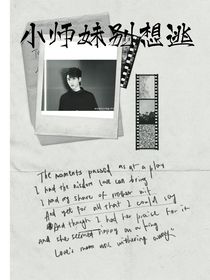 小师妹别想逃
The moments passed as at a play
I had the wisdom love can bring
I had my share of mother wit
And yet for all that I could say
And though I had her praise for it
and she seemed happy as a king
Love's moon was withering away"